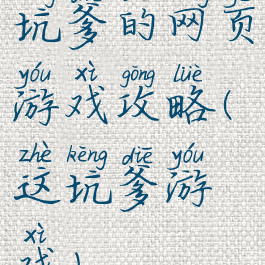 坑爹的网页
yóu xì gōng lüè
游戏攻略(
zhè kēng diē yóu
这坑爹游
xì
戏)